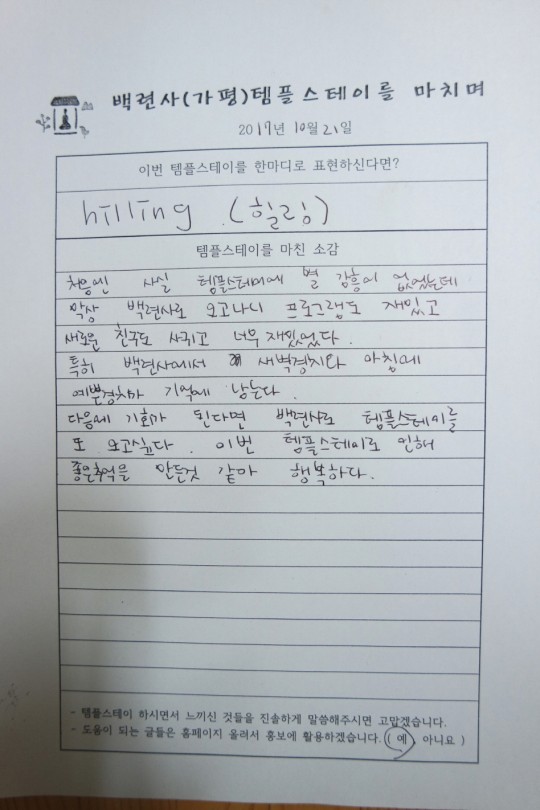 백련사(가평)템플스테이를 마치며
2017년 10월 21일
이번 템플스테이를 한마디로 표현하신다면?
hilling (힐링)
템플스테이를 마친 소감
처음엔 사실 템플스테이에 별 감흥이 없었는데
막상 백련사로 오고나니 프로그램도 재밌고
새로운 친구도 사귀고 너무 재밌었다.
특히 백련사에서 새벽경치와 아침에
예쁜경치가 기억에 남는다.
다음에 기회가 된다면 백련사로 템플스테이를
또 오고싶다. 이번 템플스테이로 인해
좋은추억을 만든것 같아 행복하다.
- 템플스테이 하시면서 느끼신 것들을 진솔하게 말씀해주시면 고맙겠습니다.
- 도움이 되는 글들은 홈페이지 올려서 홍보에 활용하겠습니다. ( 예, 아니요 )